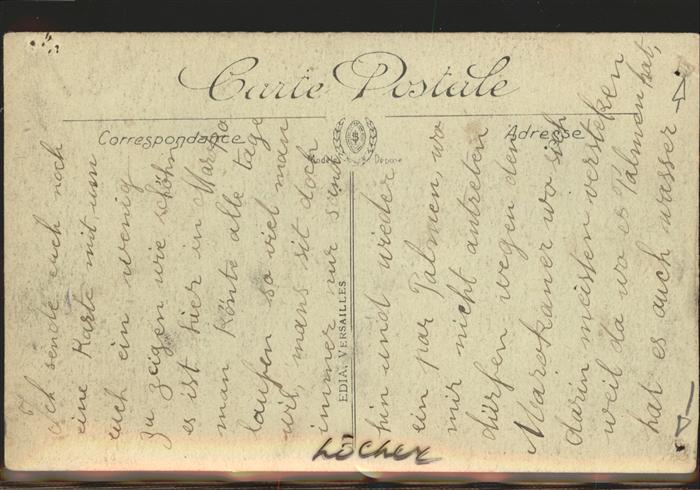 Carte Postale
Correspondance
Adresse
Modèle Déposé
EDIA, VERSAILLES
Ich sende euch noch
eine Karte mit um
euch ein wenig
zu zeigen wie schöhn
es ist hier in Maroko
man könte alle tage
laufen so viel man
wil, mans sit doch
immer nur
hin und wieder
ein par Palmen, wo
mir nicht antreben
dürfen wegen den
Marokaner wo sich
darin meisten versteken
weil da wo es Palmen hat,
hat es auch wasser
Löcher